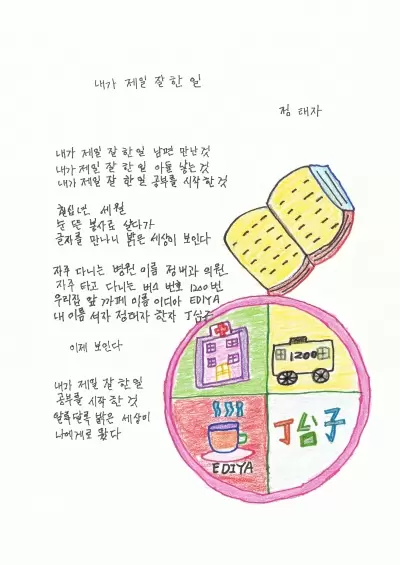 내가 제일 잘 한 일
정 태자
내가 제일 잘 한 일 남편 만난 것
내가 제일 잘 한 일 아들 낳는 것
내가 제일 잘 한 일 공부를 시작 한 것
칠십년 세월
눈 뜬 봉사로 살다가
글자를 만나니 밝은 세상이 보인다
자주 다니는 병원 이름 정 내과 의원
자주 타고 다니는 버스 번호 1200번
우리집 앞 까페 이름 이디아 EDIYA
내 이름 석자 정태자 한자 丁台子
이제 보인다
내가 제일 잘 한 일
공부를 시작 한 것
알록달록 밝은 세상이
나에게로 왔다
1200
EDIYA
丁台子